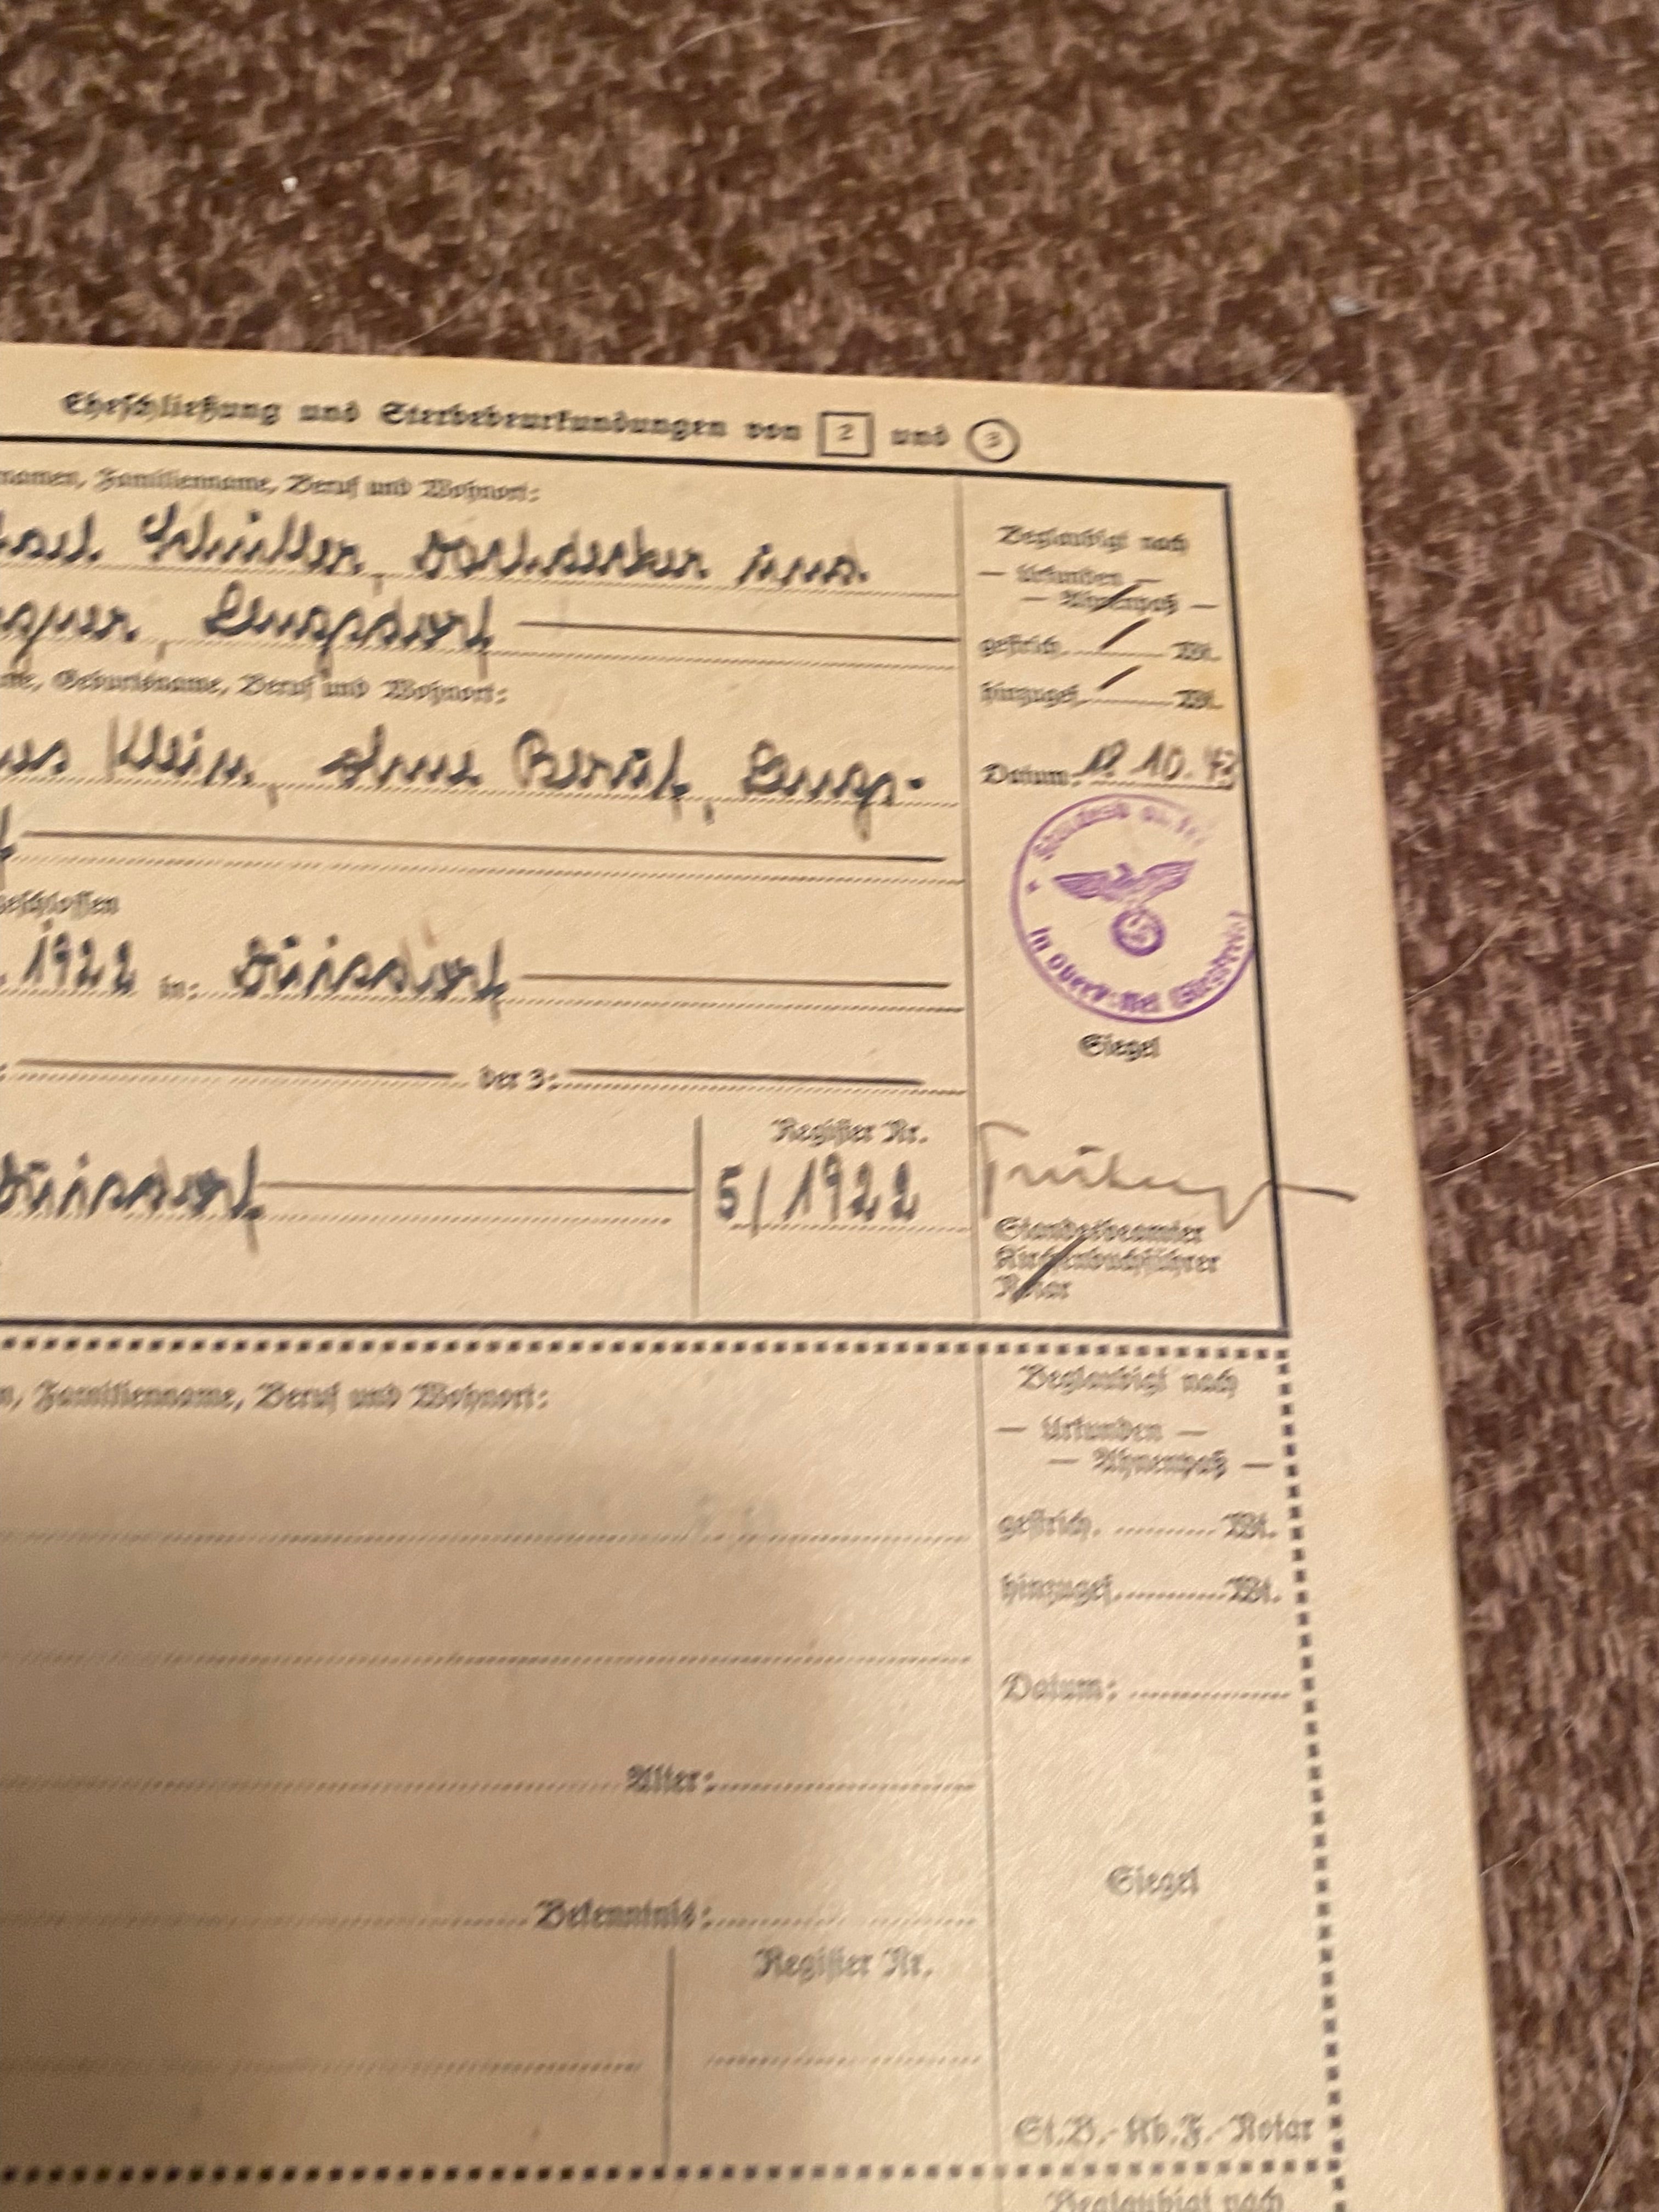 Eheschließung und Sterbebeurkundungen von 2 und 3
namen, Familienname, Beruf und Wohnort:
Schüller, Dachdecker und
Lengsdorf
Geburtsname, Beruf und Wohnort:
Klein, ohne Beruf, Lengs-
geschlossen
1922 in: Duisdorf
der 3:
Duisdorf
Register Nr.
5/1922
Beglaubigt nach
— Urkunden —
— Ahnenpaß —
gestrich. Wt.
hinzugef. Wt.
Datum: 10.43
in Oberkassel (Siegkreis)
Siegel
Standesbeamter
Kirchenbuchführer
Notar
Familienname, Beruf und Wohnort:
Alter:
Bekenntnis:
Register Nr.
Beglaubigt nach
— Urkunden —
— Ahnenpaß —
gestrich. Wt.
hinzugef. Wt.
Datum:
Siegel
St.B.-Kb.F.-Notar
Beglaubigt nach